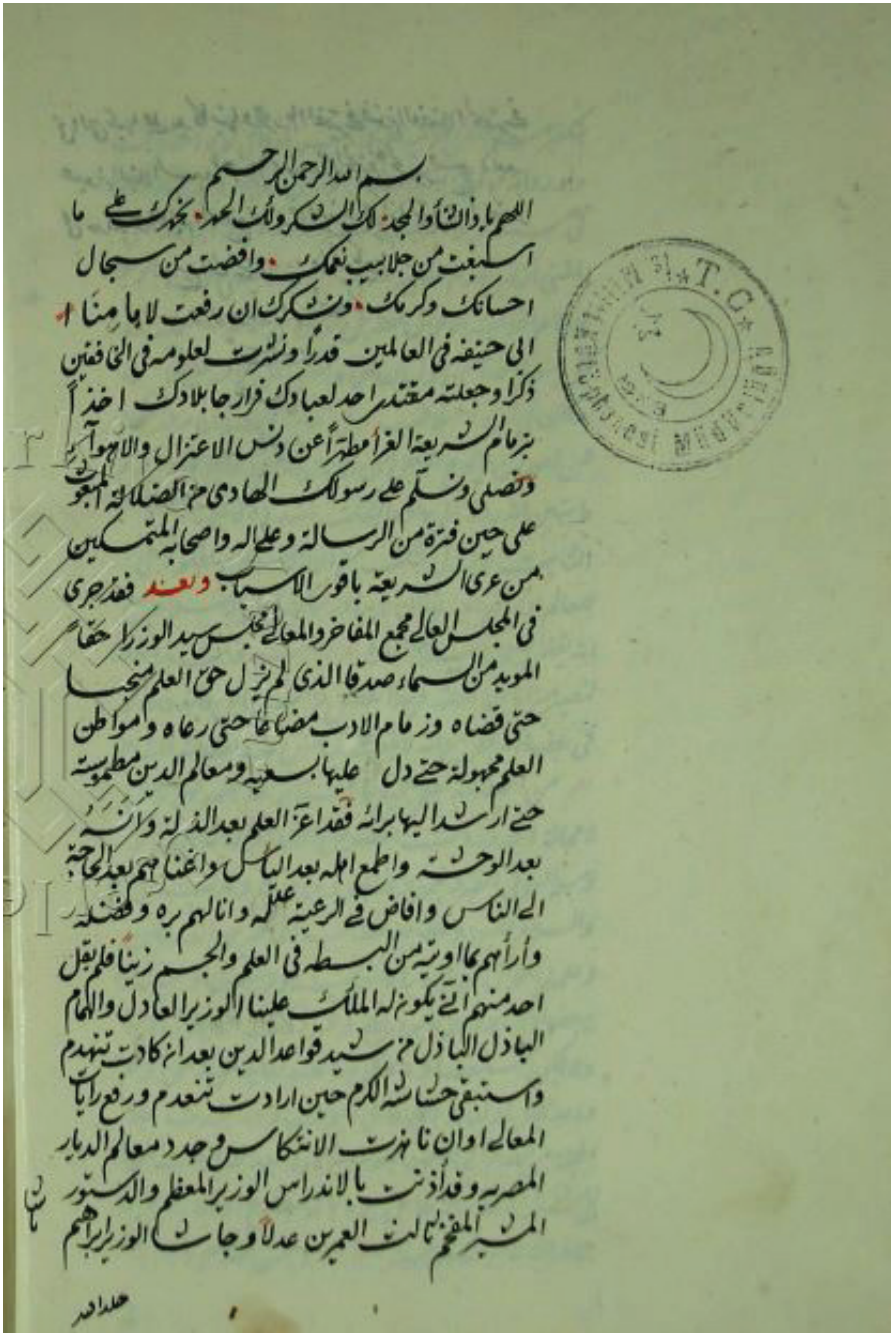 بسم الله الرحمن الرحيم
اللهم ياذا الثناء والمجد لك الشكر ولك الحمد نحمدك على ما
اسبغت من جلابيب نعمك وافضت من سجال
احسانك وكرمك ونشكرك ان رفعت لامامنا
ابى حنيفه فى العالمين قدرا ونشرت لعلومه فى الخافقين
ذكرا وجعلته مقتدى لعبادك بلادك اخذا
بزمام الشريعة الغرا مطهرا عن دنس الاعتزال والاهوآ
ونصلى ونسلم على رسولك الهادى من الضلالة المبعوث
على حين فترة من الرسالة وعلى اله واصحابه المتمسكين
من عرى الشريعة باقوى الاسباب وبعد فقد جرى
فى المجلس العالى مجمع المفاخر والمعالى مجلس سيد الوزرا حقا
المويد من السماء صدقا الذى لم يزل حق العلم
حتى قضاه وزمام الادب مضاعا حتى رعاه ومواطن
العلم مجهولة حتى دل عليها بسعيه ومعالم الدين مطموسة
حتى ارشد اليها برائه فقد اعز العلم بعد الذلة وآنسه
بعد الوحشة واطمع اهله بعد الياس واغناهم بعد الحاجة
الى الناس وافاض فى الرعية علمه وانالهم بره وفضله
وأرأهم بما اوتيه من البسطه فى العلم والجسم زينا فلم يقل
احد منهم انى يكون له الملك علينا الوزير العادل والهمام
الباذل الباذل من شيد قواعد الدين بعد ان كادت تنهدم
واستبقى حشاشة الكرم حين ارادت تنعدم ورفع رايات
المعالى اوان ناهزت الانتكاس وجدد معالم الديار
المصريه وقد أذنت بالاندراس الوزير المعظم والدستور
المشير المفخم ثالث العمرين عدلا الوزير ابراهيم
باشا
T.C.